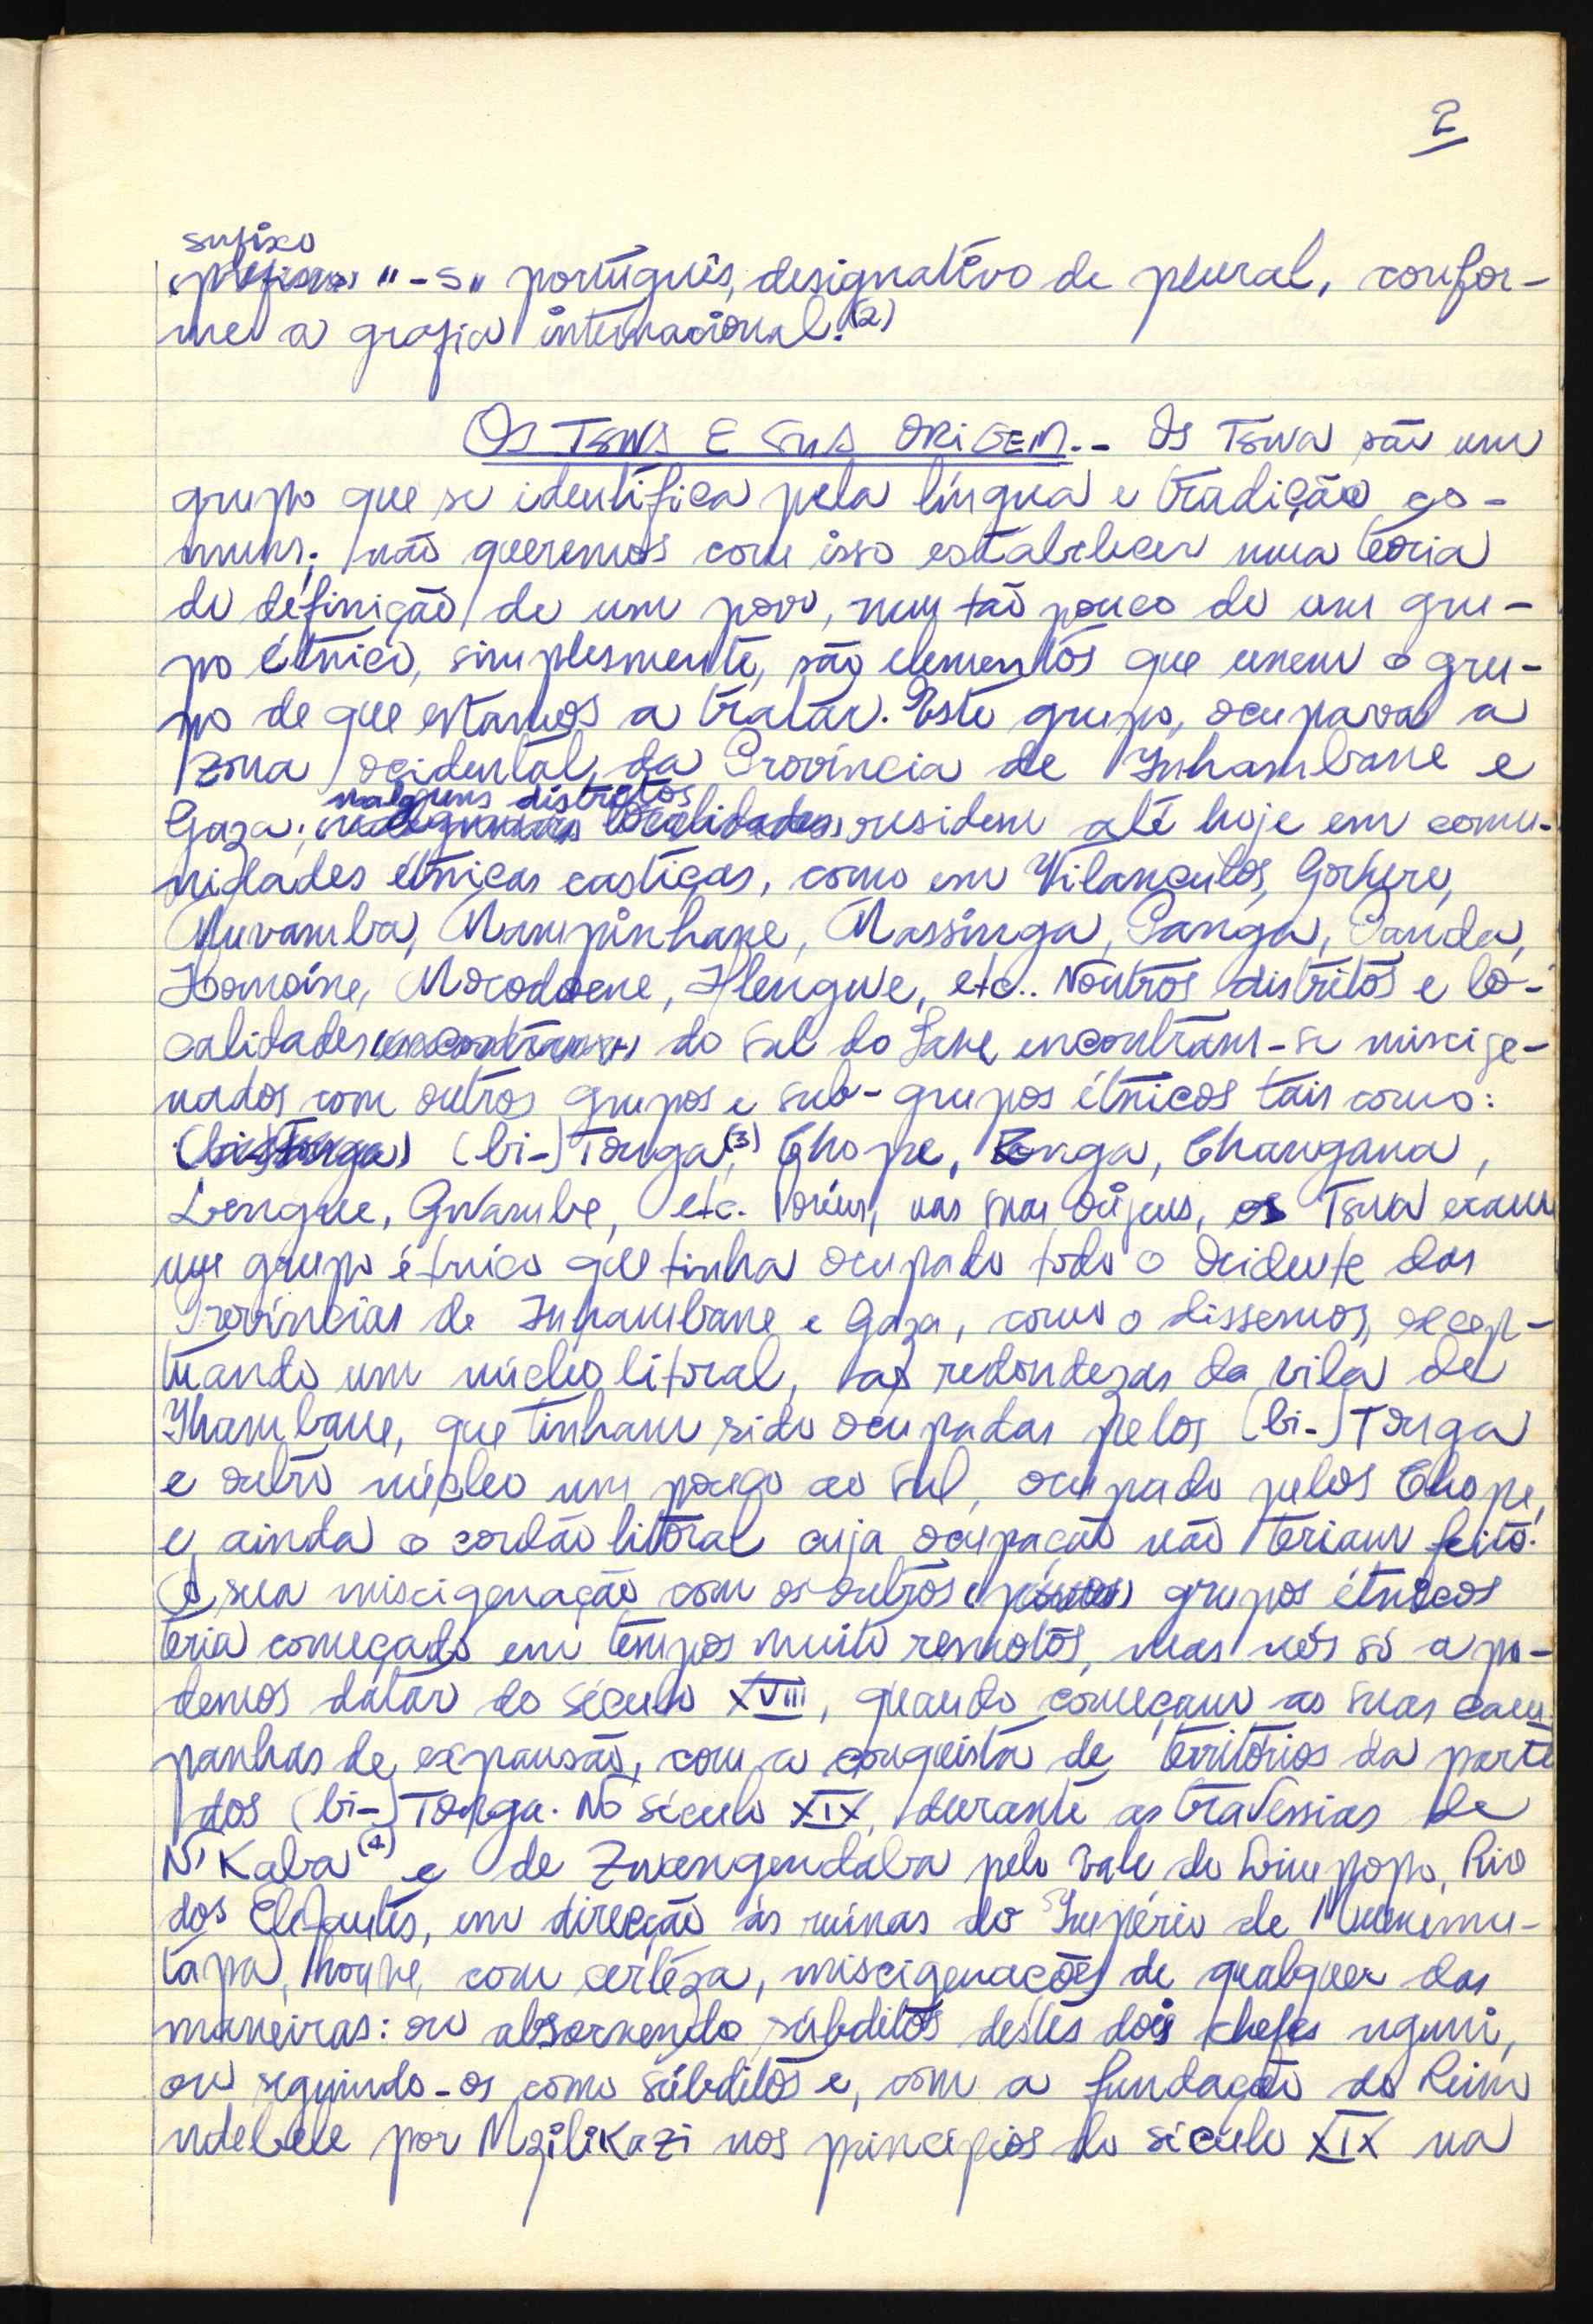 2
sufixo
"-s" português, designativo de plural, confor-
me a grafia internacional.(2)
Os TSWA E SUA ORIGEM.- Os Tswa são um
grupo que se identifica pela língua e tradição co-
muns; não queremos com isso estabelecer uma teoria
de definição de um povo, nem tão pouco de um gru-
po étnico, simplesmente, são elementos que unem o gru-
po de que estamos a tratar. Este grupo, ocupava a
zona ocidental da Província de Inhambane e
nalguns distritos
Gaza; nalgumas localidades residem até hoje em comu-
nidades étnicas castiças, como em Vilanculos,
Muvamba, Mampinhane, Massinga, Panga, Panda,
Homoíne, Mocodoene, Hlengwe, etc.. Noutros distritos e lo-
calidades encontram-se do Sul do Save encontram-se miscige-
nados com outros grupos e sub-grupos étnicos tais como:
(bi-)Tonga (bi-)Tonga(3), Chope, Ronga, Changana,
Lengue, Gwambe, etc. Porém, nas suas origens, os Tswa eram
um grupo étnico que tinha ocupado todo o Ocidente das
Províncias de Inhambane e Gaza, como o dissemos, excep-
tuando um núcleo litoral, as redondezas da vila de
Ihambane, que tinham sido ocupadas pelos (bi-)Tonga
e outro núcleo um pouco ao Sul, ocupado pelos Chope,
e ainda o cordão litoral cuja ocupação não teriam feito.
A sua miscigenação com os outros grupos étnicos
teria começado em tempos muito remotos, mas nós só a po-
demos datar do século XVIII, quando começam as suas cam-
panhas de expansão, com a conquista de territórios da parte
dos (bi-)Tonga. No século XIX, durante as travessias de
N'Kaba(4) e de Zwangendaba pelo vale do Limpopo, Rio
dos Elefantes, em direcção às ruínas do Império de Muenemu-
tapa, houve, com certeza, miscigenações de qualquer das
maneiras: ou absorvendo súbditos destes dois chefes nguni,
ou seguindo-os como súbditos e, com a fundação do Reino
ndebele por Mzilikazi nos princípios do século XIX na